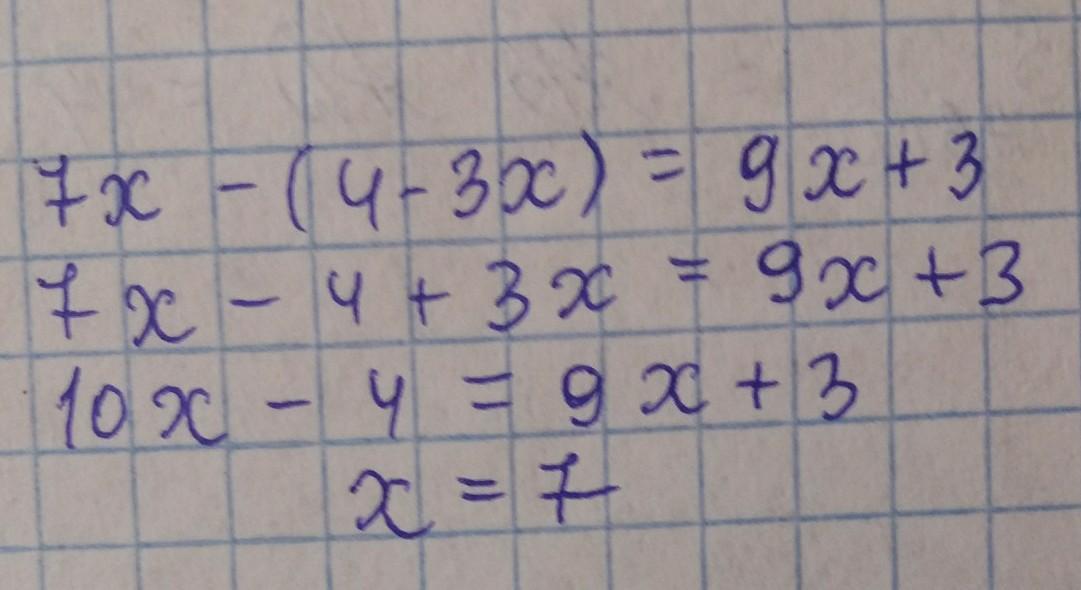 7x - (4 - 3x) = 9x + 3
7x - 4 + 3x = 9x + 3
10x - 4 = 9x + 3
x = 7